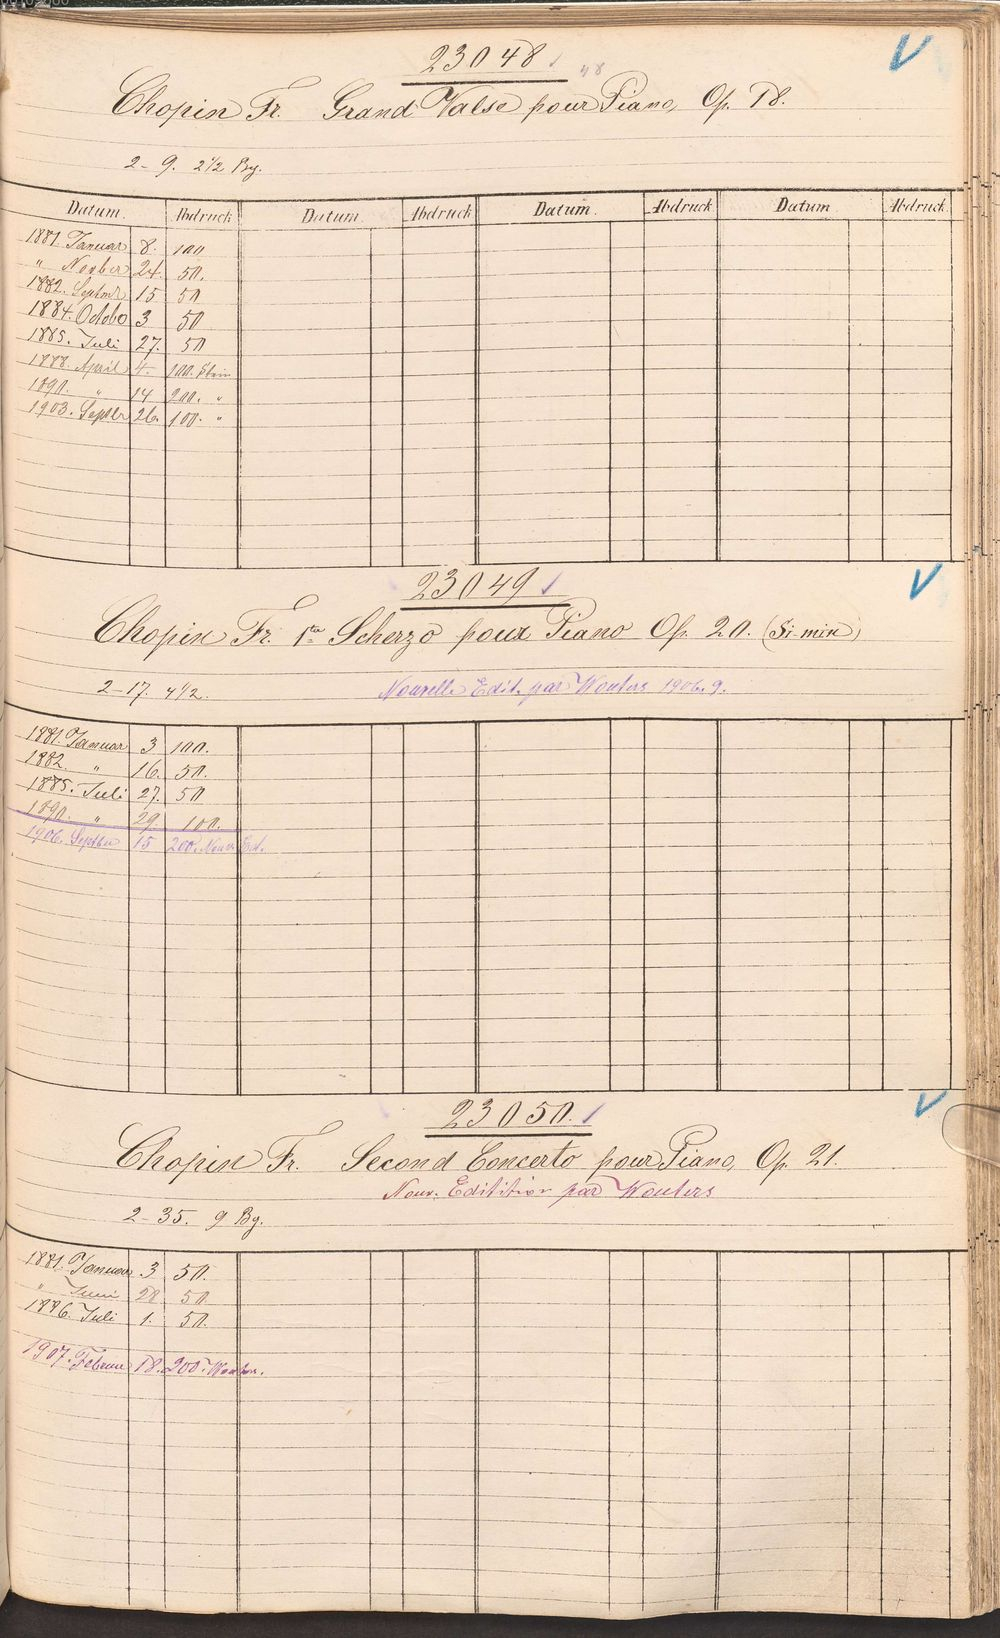 23048
48
Chopin Fr. Grand Valse pour Piano, Op. 18.
2-9. 2 1/2 Bg.
Datum. Abdruck Datum. Abdruck Datum. Abdruck Datum Abdruck
1881. Januar 8. 100
" Novber 24. 50.
1882. Septmr 15 50
1884. Octobo 3 50
1885. Juli 27. 50
1888. April 4. 100. Stein
1890. " 14 200. "
1903. Septbr 26. 100. "
23049
Chopin Fr. 1ter Scherzo pour Piano Op. 20. (Si min)
2-17. 4 1/2. Nouvelle Edit. par Wouters 1906. 9.
1881. Januar 3 100.
1882. " 16. 50.
1885. Juli 27. 50
1890. " 29. 100.
1906. Septber 15 200. Nouv. Ed.
23050.
Chopin Fr. Second Concerto pour Piano, Op. 21.
Nouv. Editition par Wouters
2-35. 9 Bg.
1881. Januar 3 50.
" Juni 28 50
1886. Juli 1. 50.
1907. Februar 18. 200. Wouters.